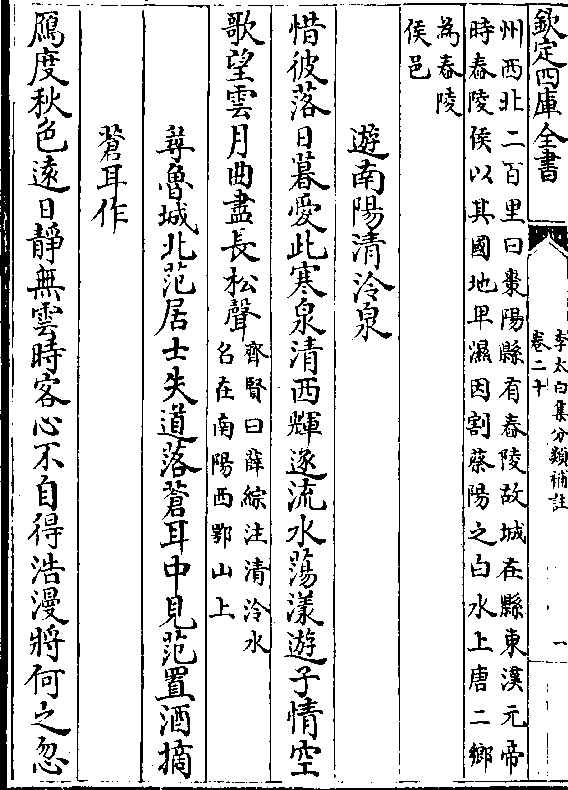 欽定四庫全書
李太白集分類補註
卷二十
一
州西北二百里曰棗陽縣有舂陵故城在縣東漢元帝
時舂陵侯以其國地卑濕因割蔡陽之白水上唐二鄉
為舂陵
侯邑
遊南陽清泠泉
惜彼落日暮愛此寒泉清西輝逐流水蕩漾遊子情空
歌望雲月曲盡長松聲
齊賢曰薛綜注清泠水
名在南陽西鄂山上
尋魯城北范居士失道落蒼耳中見范置酒摘
蒼耳作
鴈度秋色遠日靜無雲時客心不自得浩漫將何之忽